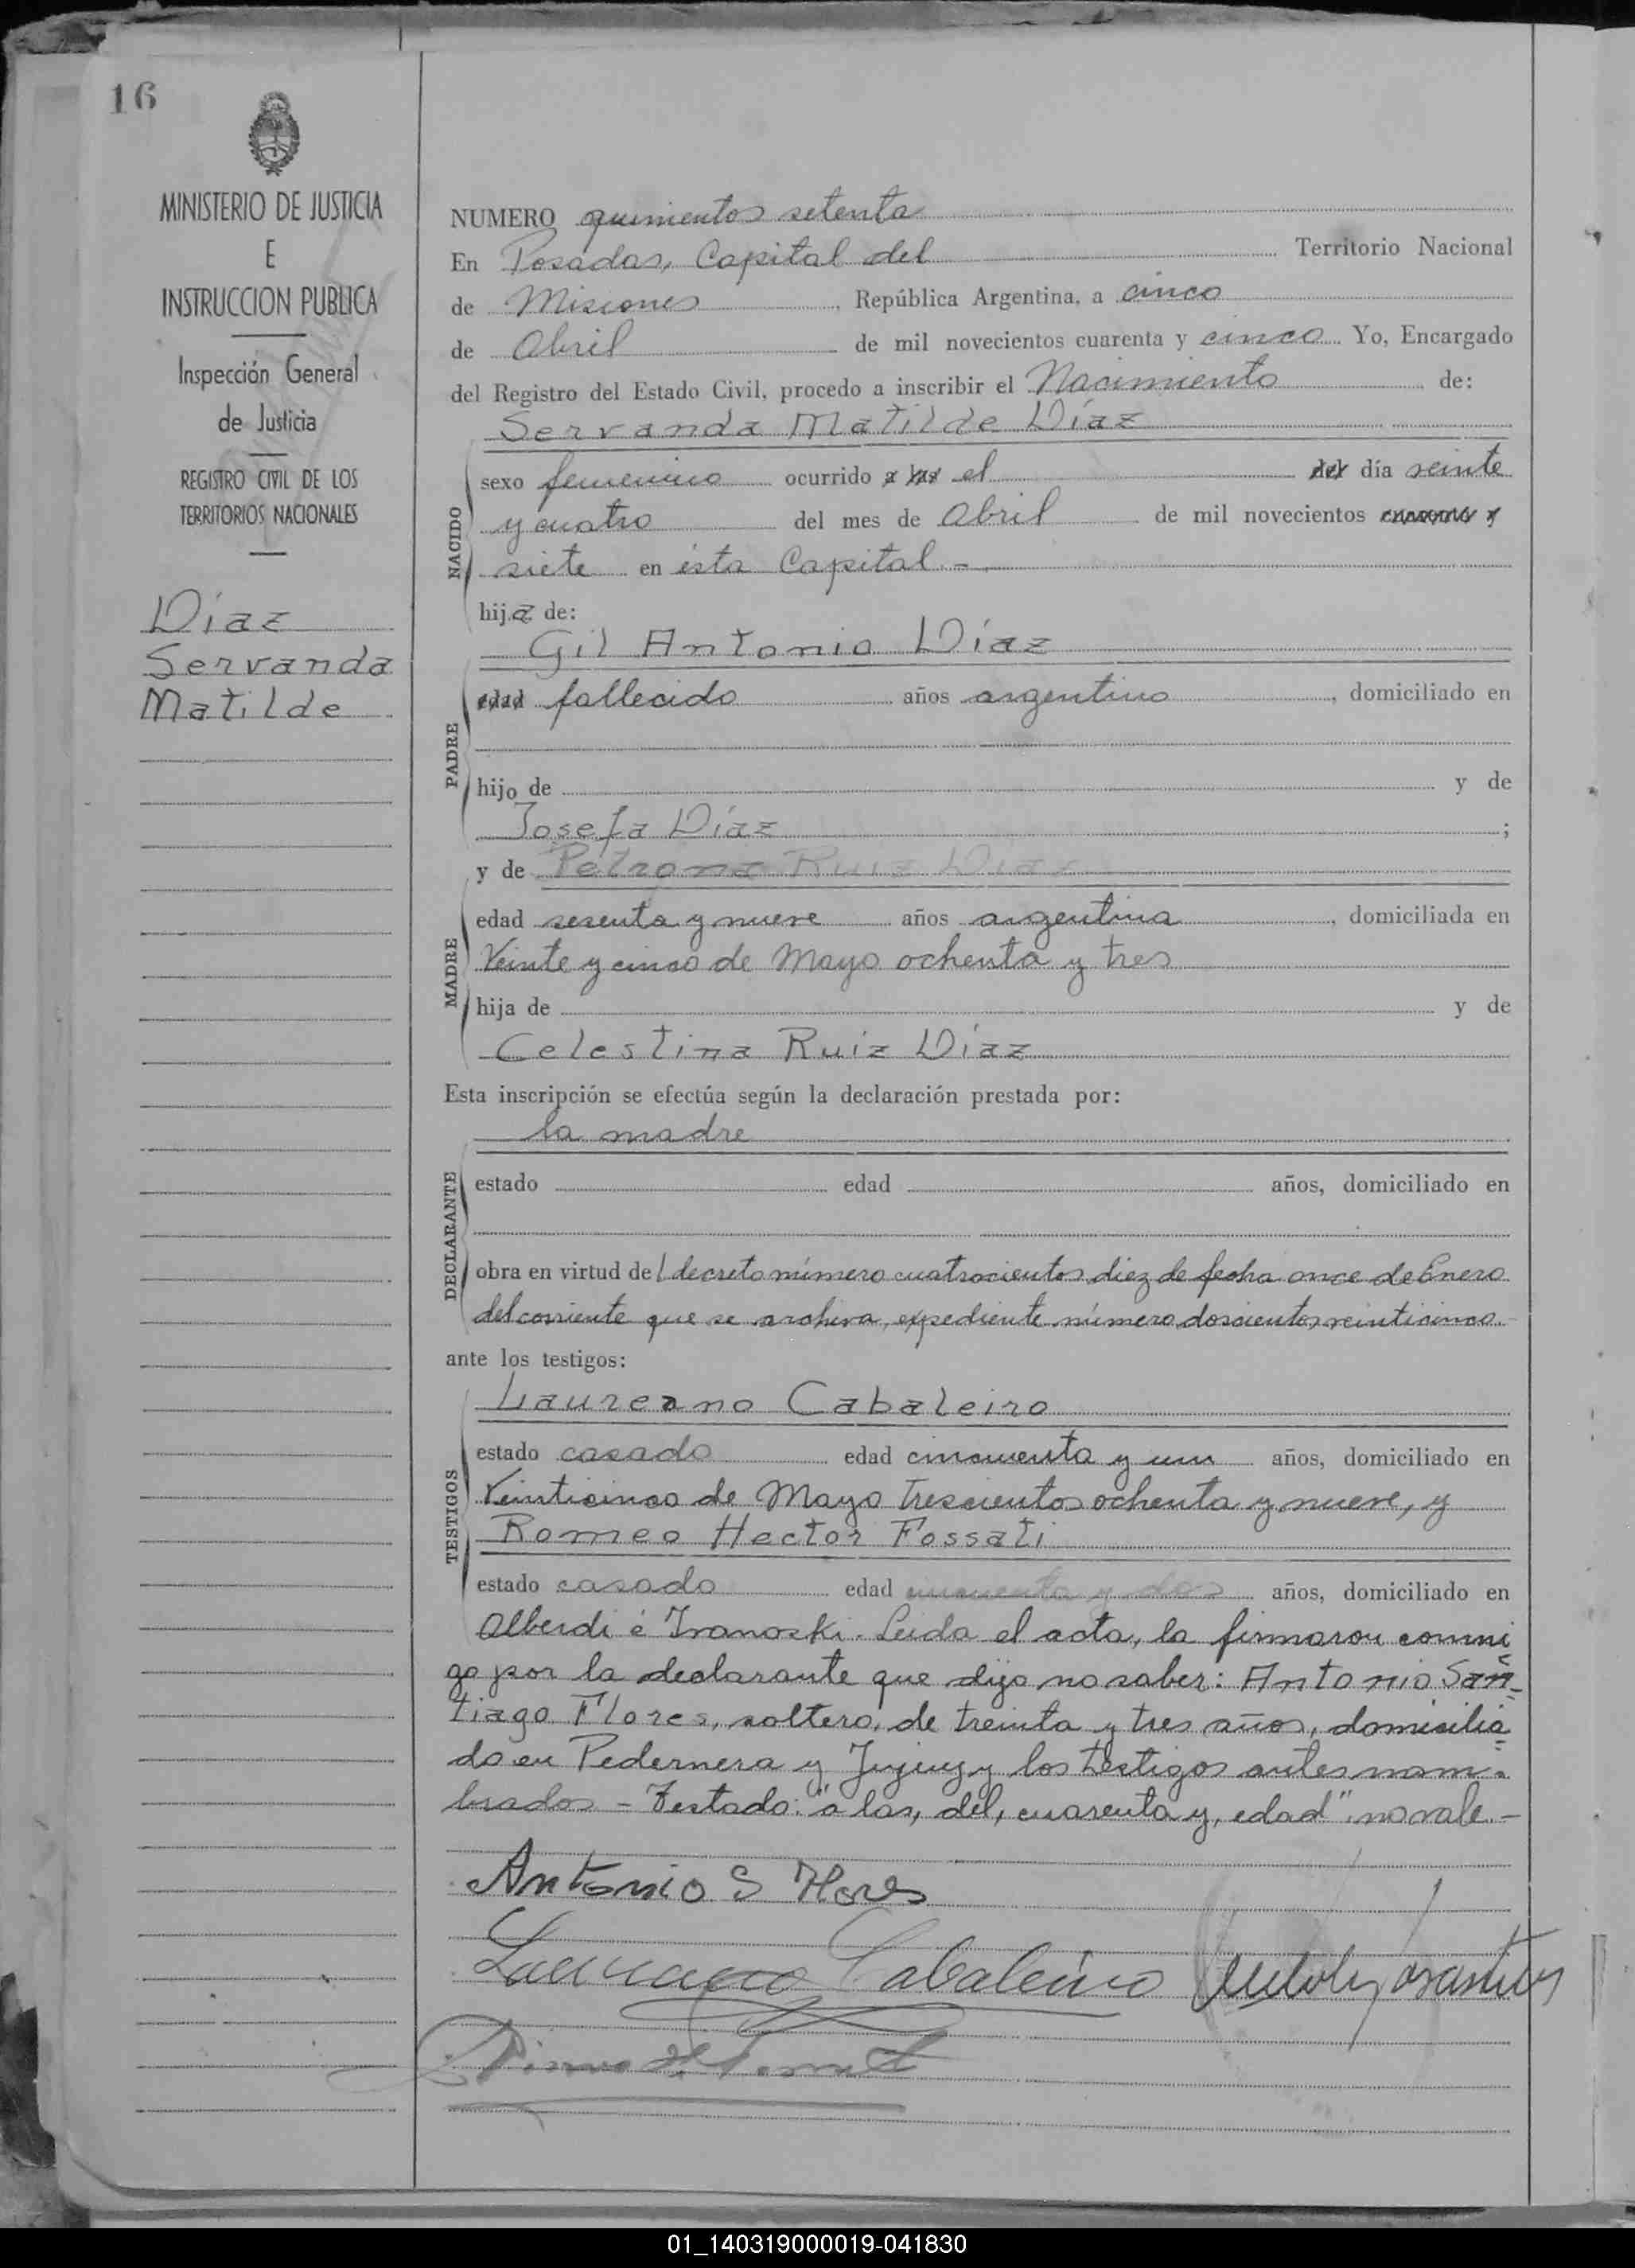 16
MINISTERIO DE JUSTICIA
E
INSTRUCCION PUBLICA
Inspección General
de Justicia
REGISTRO CIVIL DE LOS
TERRITORIOS NACIONALES
Díaz
Servanda
Matilde
NUMERO quinientos setenta
En Posadas, Capital del Territorio Nacional
de Misiones, República Argentina, a cinco
de Abril de mil novecientos cuarenta y cinco. Yo, Encargado
del Registro del Estado Civil, procedo a inscribir el Nacimiento de:
Servanda Matilde Díaz
NACIDO
sexo femenino ocurrido a las el del día veinte
y cuatro del mes de Abril de mil novecientos cuarenta y
siete en ésta Capital.-
hija de:
Gil Antonio Díaz
PADRE
edad fallecido años argentino, domiciliado en
hijo de y de
Josefa Díaz;
y de Petrona Ruiz Díaz
MADRE
edad sesenta y nueve años argentina, domiciliada en
Veinte y cinco de Mayo ochenta y tres
hija de y de
Celestina Ruiz Díaz
Esta inscripción se efectúa según la declaración prestada por:
la madre
DECLARANTE
estado edad años, domiciliado en
obra en virtud del decreto número cuatrocientos diez de fecha once de Enero
del corriente que se archiva, expediente número doscientos veinticinco.
ante los testigos:
Laureano Cabaleiro
TESTIGOS
estado casado edad cincuenta y un años, domiciliado en
Veinticinco de Mayo trescientos ochenta y nueve, y
Romeo Hector Fossati
estado casado edad cincuenta y dos años, domiciliado en
Alberdi é Ivanoski. Leida el acta, la firmaron conmi
go por la declarante que dijo no saber: Antonio San-
tiago Flores, soltero, de treinta y tres años, domicilia
do en Pedernera y Jujuy y los testigos antes nom-
brados - Testado: "a las, del, cuarenta y, edad" no vale.-
Antonio S Flores
Laureano Cabaleiro
01_140319000019-041830